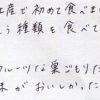 産で初めて食べま
う種類を食べて
フルーツな巣ごもりた
味がおいしかった